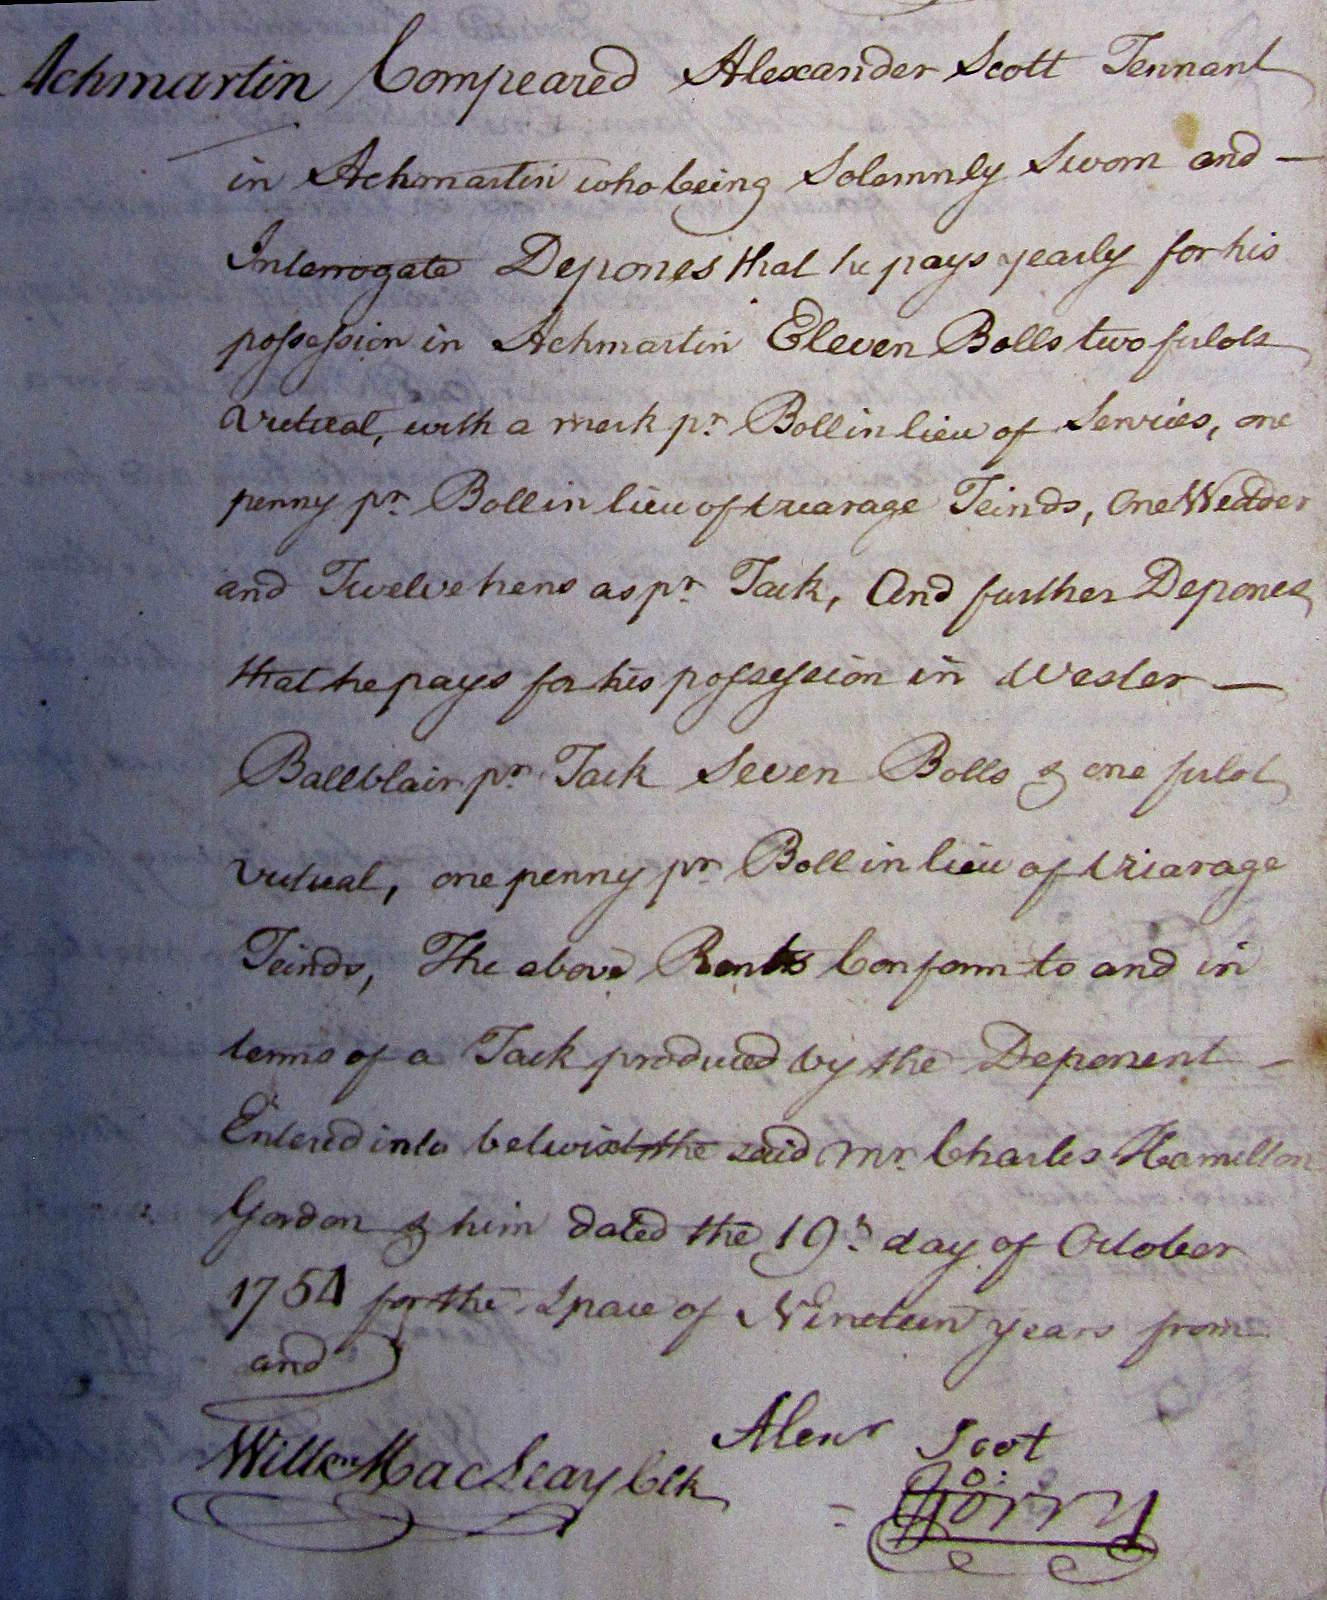 Achmartin Compeared Alexander Scott Tennant
in Achmartin who being Solemnly Sworn and —
Interrogate Depones that he pays yearly for his
possession in Achmartin Eleven Bolls two firlots
victual, with a merk pr. Boll in lieu of Services, one
penny pr. Boll in lieu of vicarage Teinds, One Wedder
and Twelve hens as pr. Tack, And further Depones
that he pays for his possession in Wester —
Ballblair pr. Tack Seven Bolls & one firlot
victual, one penny pr. Boll in lieu of vicarage
Teinds, The above Rents Conform to and in
terms of a Tack produced by the Deponent —
Entered into betwixt the said Mr. Charles Hamilton
Gordon & him dated the 19th day of October
1754 for the Space of Nineteen years from
and
Alexr Scot
Willm MacLeay Clk